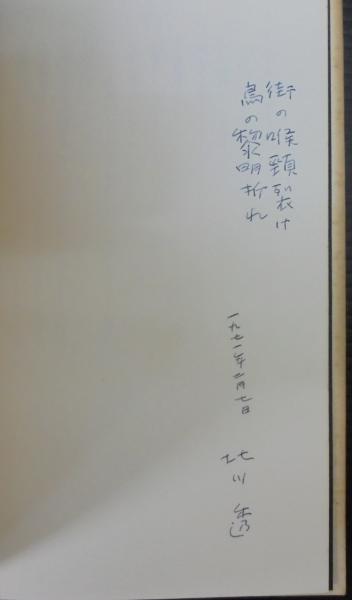 街の喉頸裂け
鳥の黎明折れ
一九七一年二月七日
北川透